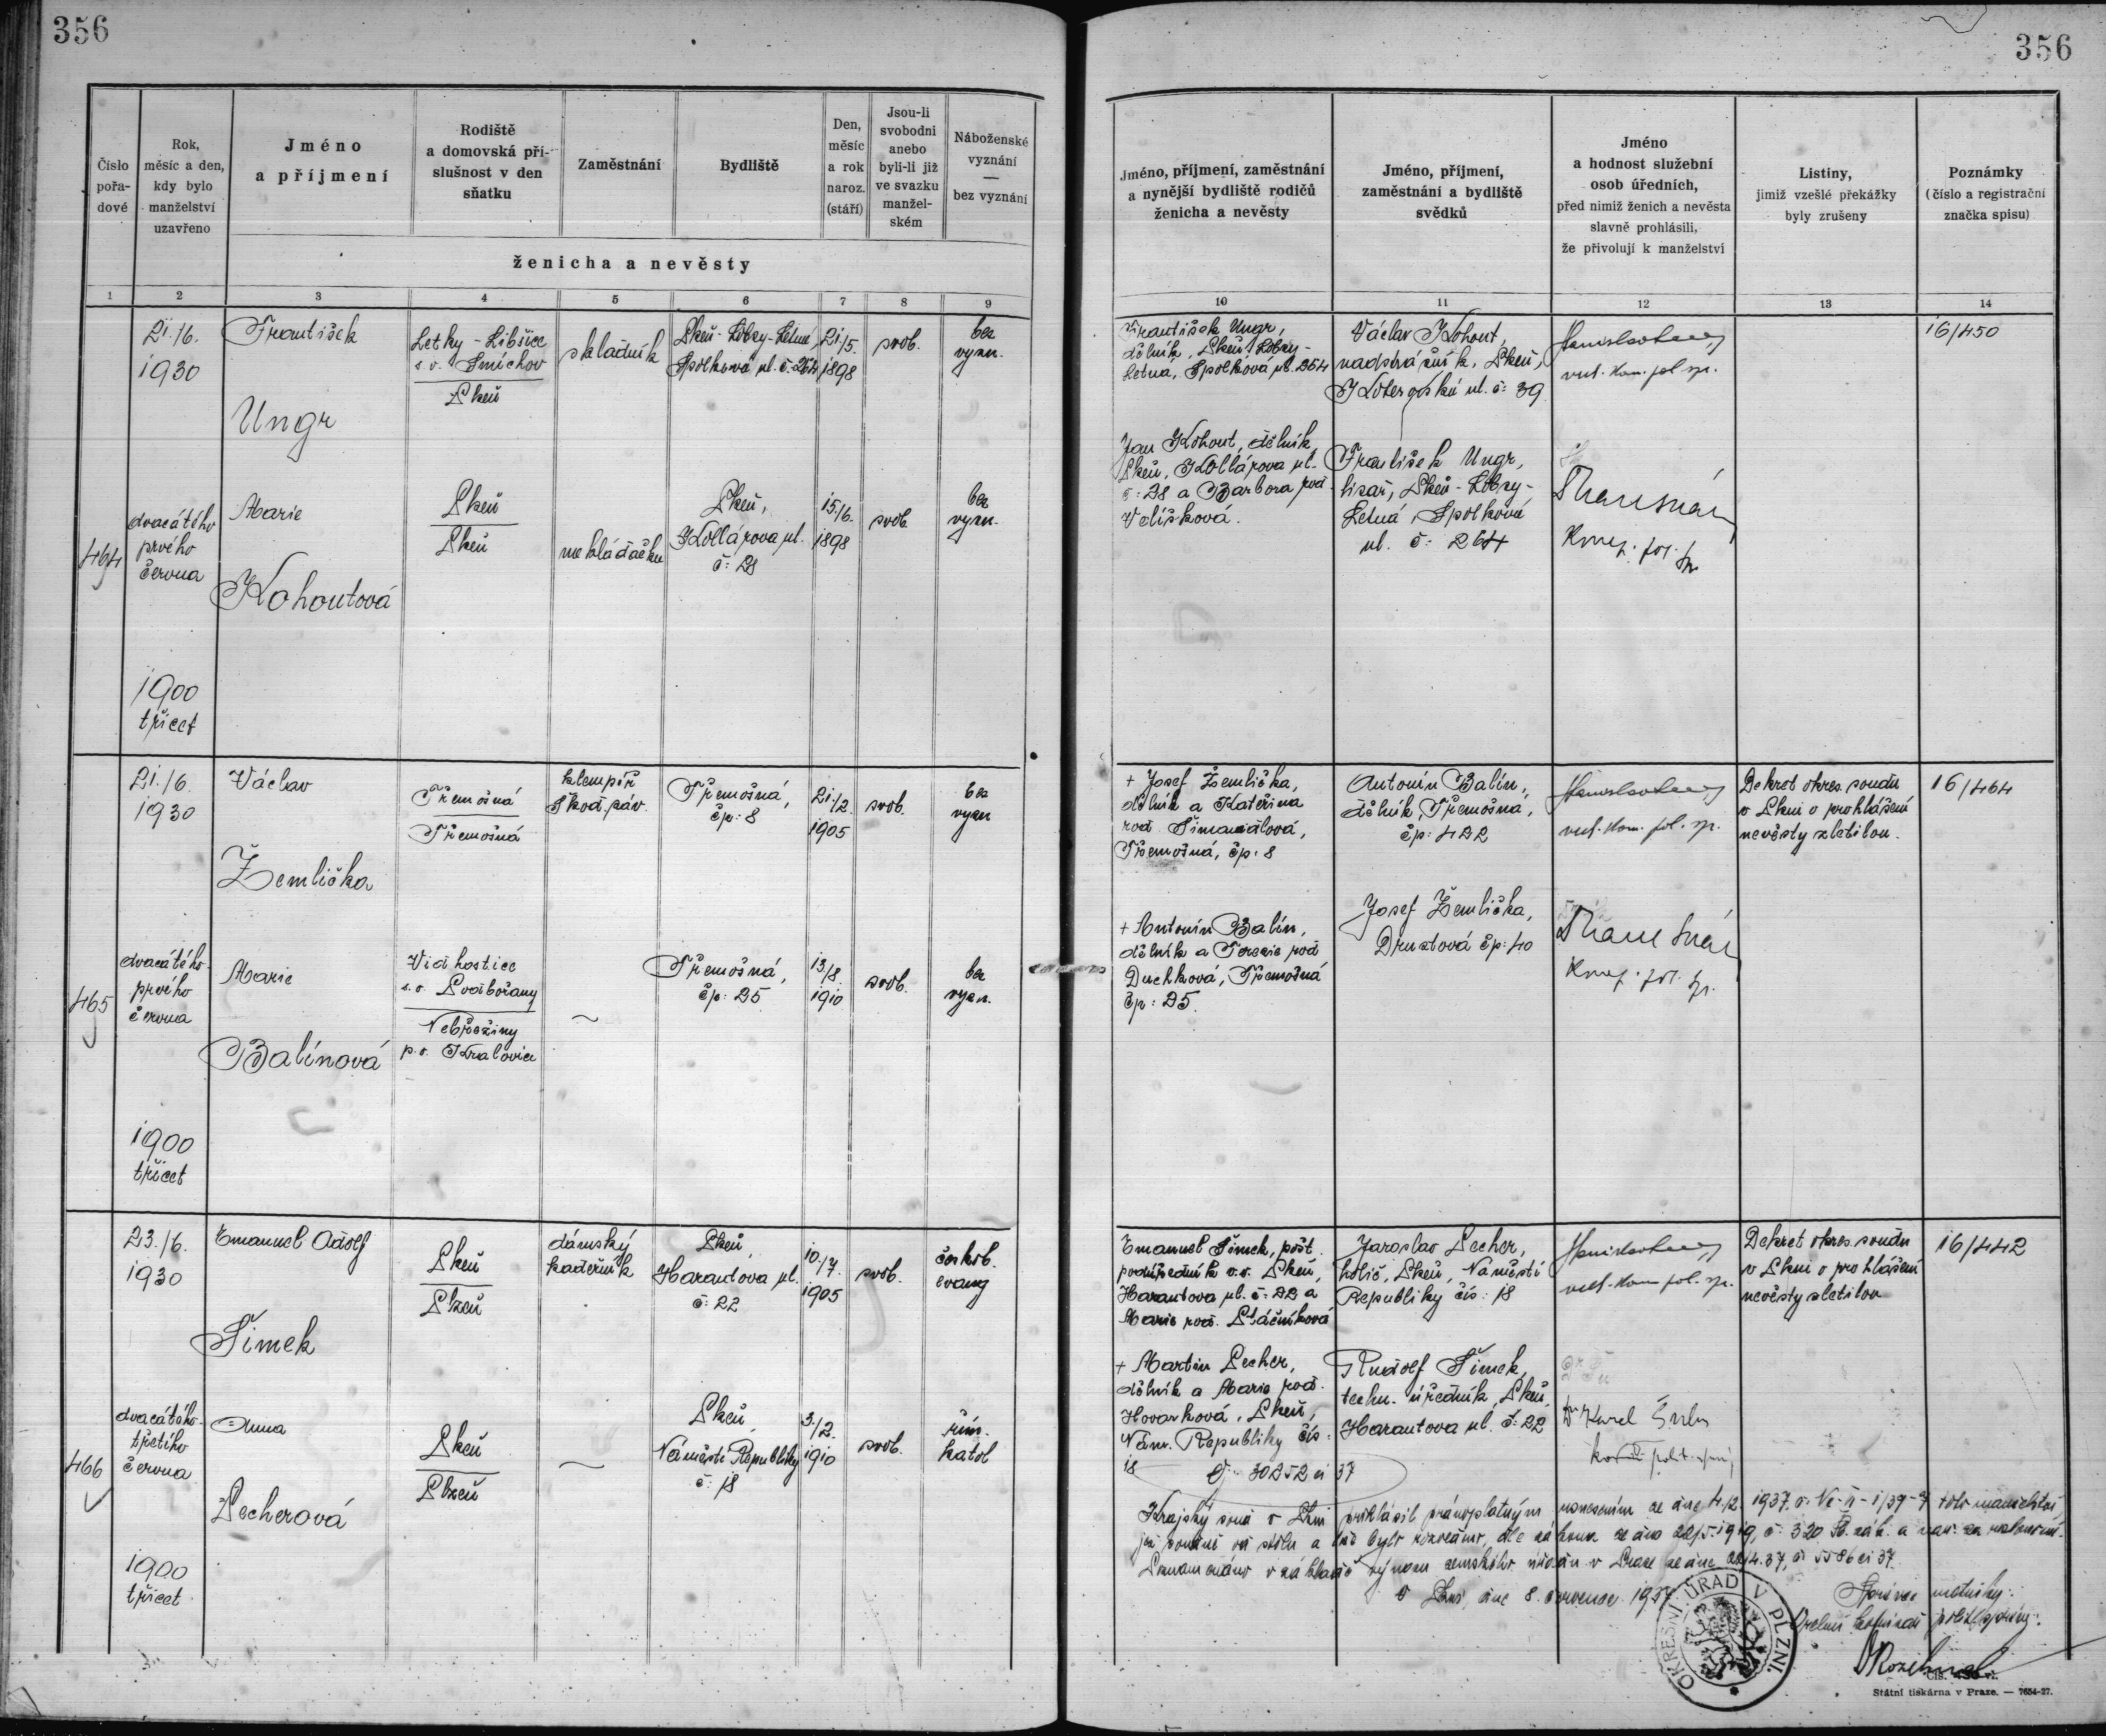 356
356
Číslo
pořa-
dové
Rok,
měsíc a den,
kdy bylo
manželství
uzavřeno
Jméno
a příjmení
Rodiště
a domovská pří-
slušnost v den
sňatku
Zaměstnání
Bydliště
Den,
měsíc
a rok
naroz.
(stáří)
Jsou-li
svobodni
anebo
byli-li již
ve svazku
manžel-
ském
Náboženské
vyznání
—
bez vyznání
ženicha a nevěsty
Jméno, příjmení, zaměstnání
a nynější bydliště rodičů
ženicha a nevěsty
Jméno, příjmení,
zaměstnání a bydliště
svědků
Jméno
a hodnost služební
osob úředních,
před nimiž ženich a nevěsta
slavně prohlásili,
že přivolují k manželství
Listiny,
jimiž vzešlé překážky
byly zrušeny
Poznámky
(číslo a registrační
značka spisu)
1 2 3 4 5 6 7 8 9
10 11 12 13 14
464
21./6.
1930
dvacátého
prvého
června
1900
třicet
František
Ungr
Letky - Libšice
s.o. Smíchov
Plzeň
skladník
Plzeň-Lobzy-Letná,
Spolková ul. č. 264
21/5.
1898
svob.
bez
vyzn.
Marie
Kohoutová
Plzeň
Plzeň
nakládačka
Plzeň,
Kollárova ul.
č: 28
15/6.
1898
svob.
bez
vyzn.
František Ungr,
dělník, Plzeň-Lobzy-
Letná, Spolková ul. 264
Jan Kohout, dělník,
Plzeň, Kollárova ul.
č: 28 a Barbora roz.
Velíšková.
Václav Kohout,
nadstrážník, Plzeň,
Koterovská ul. č: 39
František Ungr,
lisař, Plzeň-Lobzy-
Letná, Spolková
ul. č: 264
vrch. kom. pol. spr.
16/450
465
21./6.
1930
dvacátého
prvého
června
1900
třicet
Václav
Žemlička
Třemošná
Třemošná
klempíř
Škod. záv.
Třemošná,
čp: 8
21./2.
1905
svob.
bez
vyzn
Marie
Balínová
Vidhostice
s.o. Podbořany
Nebřeziny
p.o. Kralovice
Třemošná,
čp: 25
13/8.
1910
svob.
bez
vyzn.
+ Josef Žemlička,
dělník a Kateřina
roz. Šimandlová,
Třemošná, čp: 8
+ Antonín Balín,
dělník a Terezie roz.
Duchková, Třemošná
čp: 25.
Antonín Balín,
dělník, Třemošná,
čp: 422
Josef Žemlička,
Druztová čp: 40
vrch. kom. pol. spr.
Dekret okres. soudu
v Plzni o prohlášení
nevěsty zletilou.
16/464
466
23./6.
1930
dvacátého
třetího
června
1900
třicet
Emanuel Adolf
Šimek
Plzeň
Plzeň
dámský
kadeřník
Plzeň,
Harantova ul.
č: 22
10./7.
1905
svob.
českob.
evang
Anna
Pecherová
Plzeň
Plzeň
Plzeň
Náměstí Republiky
č: 18
3./2.
1910
svob.
řím.
katol
Emanuel Šimek, pošt.
podúředník v.v. Plzeň,
Harantova ul. č: 22 a
Marie roz. Ptáčníková
+ Martin Pecher,
dělník a Marie roz.
Hovorková, Plzeň,
Nám. Republiky čís:
18
Jaroslav Pecher,
holič, Plzeň, Náměstí
Republiky čís: 18
Rudolf Šimek,
techn. úředník, Plzeň,
Harantova ul. č: 22
vrch. kom. pol. spr.
Dr Karel
Dekret okres. soudu
v Plzni o prohlášení
nevěsty zletilou
16/442
čj. 30252 ai 37
Krajský soud v Plzni prohlásil právoplatným usnesením ze dne 4./2. 1937 toto manželství
dle zákona ze dne 22/5. 1919, č: 320 Sb. zák. a nař.
Poznamenáno v základě výnosu zemského úřadu v Praze ze dne
V Plzni, dne 8. července 1937.
Správce matriky:
OKRESNÍ ÚŘAD V PLZNI.
Státní tiskárna v Praze. — 7654-27.